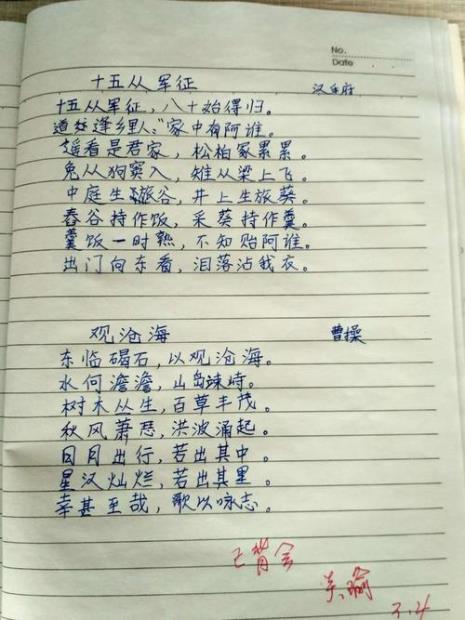 No.
Date
十五从军征
汉乐府
十五从军征，八十始得归。
道逢乡里人："家中有阿谁。
遥看是君家，松柏冢累累。
兔从狗窦入，雉从梁上飞。
中庭生旅谷，井上生旅葵。
舂谷持作饭，采葵持作羹。
羹饭一时熟，不知贻阿谁。
出门向东看，泪落沾我衣。
观沧海
曹操
东临碣石，以观沧海。
水何澹澹，山岛竦峙。
树木丛生，百草丰茂。
秋风萧瑟，洪波涌起。
日月出行，若出其中。
星汉灿烂，若出其里。
幸甚至哉，歌以咏志。
已背会
3.4